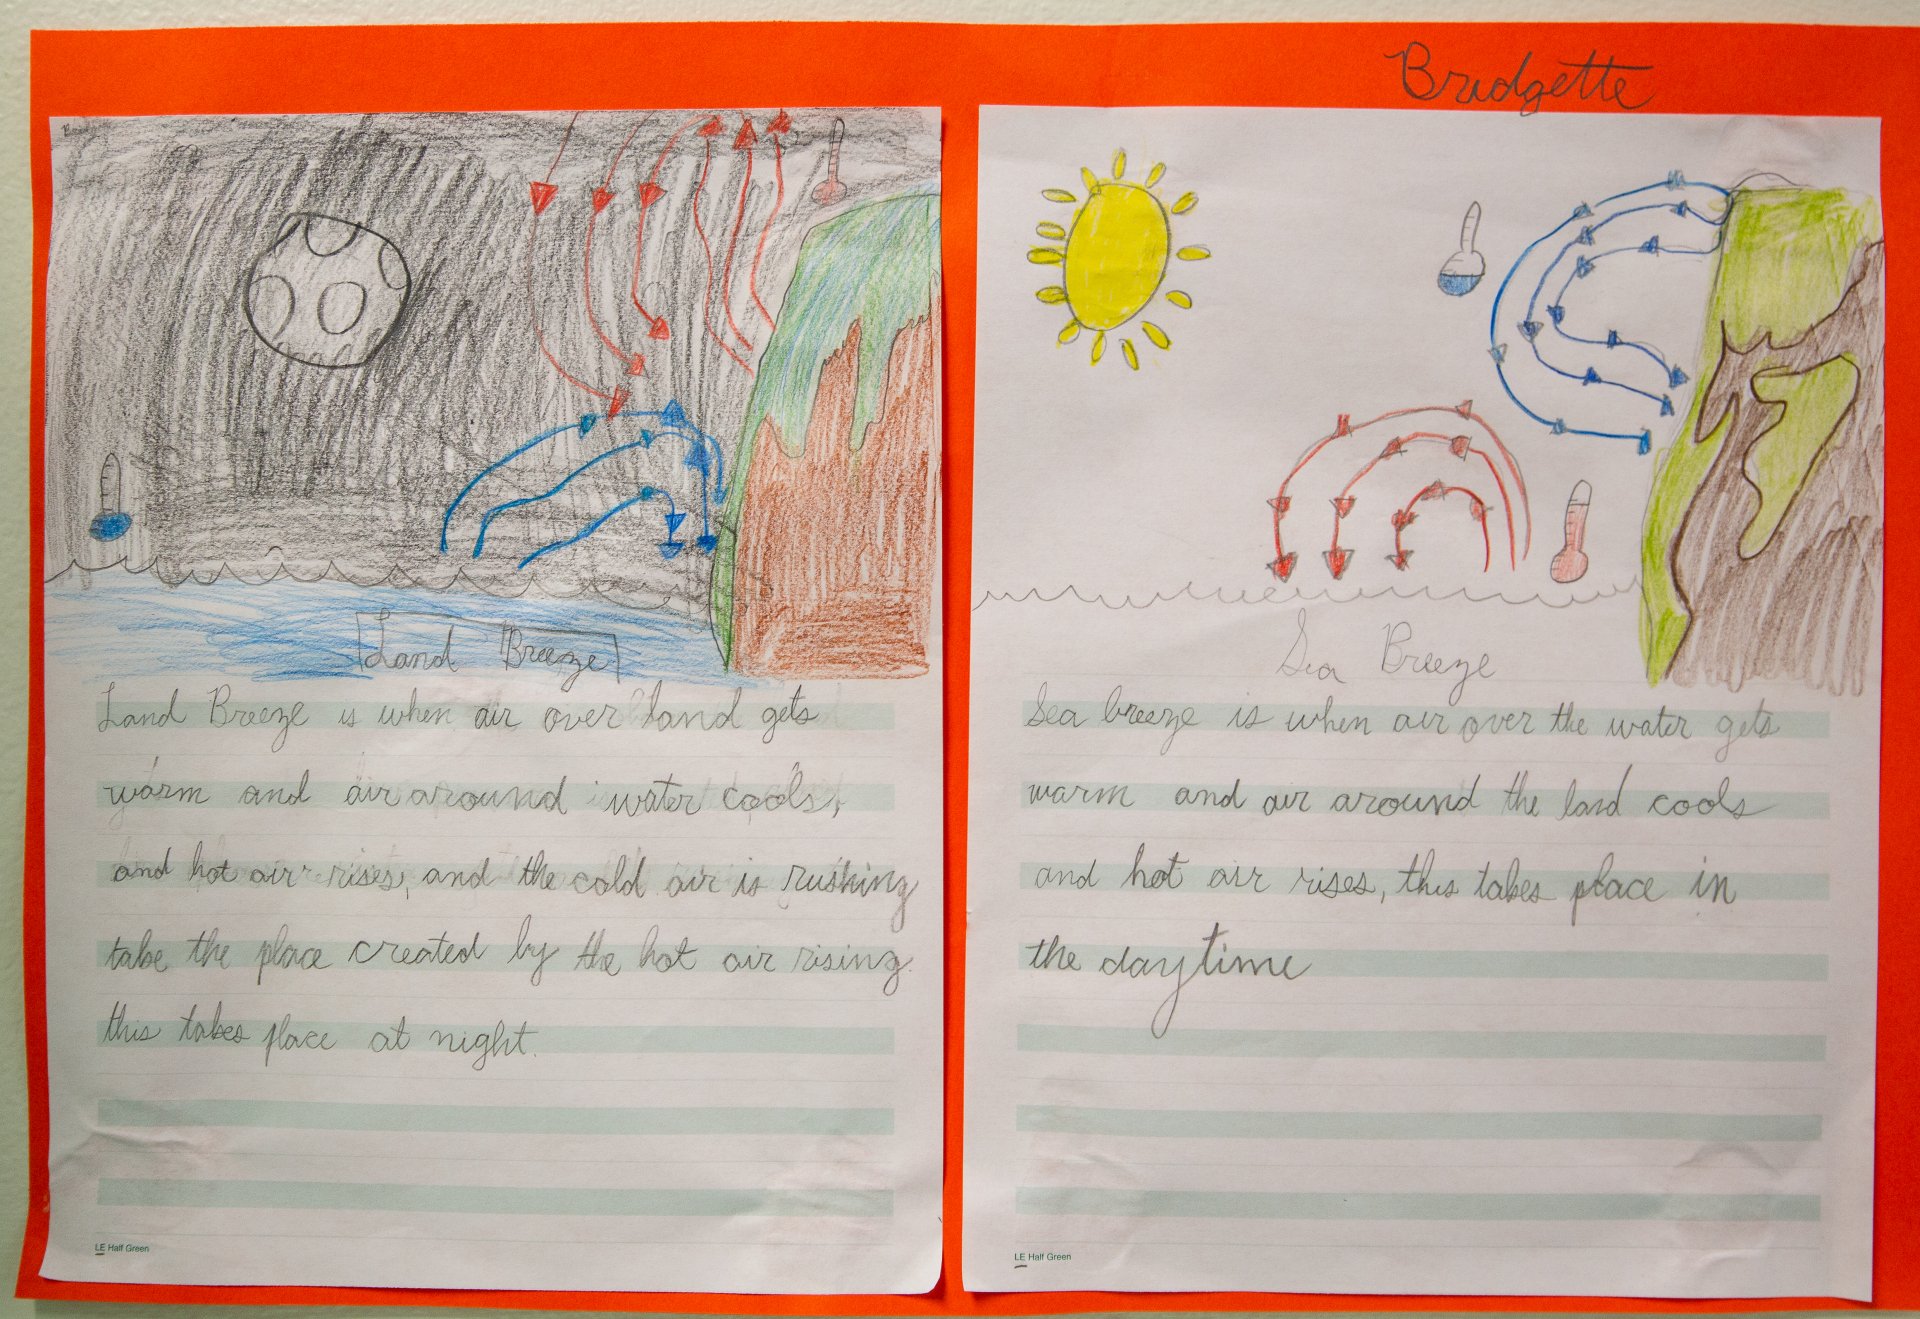 Bridgette
Land Breeze
Land Breeze is when air over land gets
warm and air around water cools,
and hot air rises, and the cold air is rushing
take the place created by the hot air rising.
this takes place at night.
LE Half Green
Sea Breeze
Sea breeze is when air over the water gets
warm and air around the land cools
and hot air rises, this takes place in
the daytime
LE Half Green